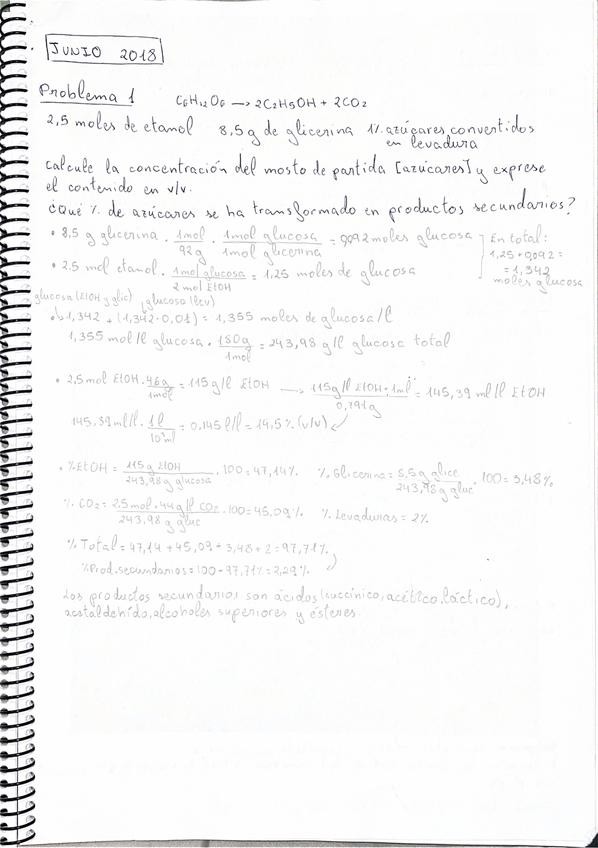 JUNIO 2018
Problema 1 C6H12O6 → 2C2H5OH + 2CO2
2,5 moles de etanol 8,5 g de glicerina 1% azúcares convertidos en levadura
Calcule la concentración del mosto de partida [azúcares] y exprese
el contenido en v/v.
¿Qué % de azúcares se ha transformado en productos secundarios?
• 8,5 g glicerina · 1mol/92g · 1mol glucosa/1mol glicerina = 0,092 moles glucosa
• 2,5 mol etanol · 1mol glucosa/2 mol EtOH = 1,25 moles de glucosa
En total:
1,25 + 0,092 =
= 1,342
moles glucosa
glucosa (EtOH y glic) glucosa (lev)
1,342 + (1,342 · 0,01) = 1,355 moles de glucosa/l
1,355 mol/l glucosa · 180g/1mol = 243,98 g/l glucosa total
• 2,5mol EtOH · 46g/1mol = 115 g/l EtOH → 115g/l EtOH · 1ml/0,791g = 145,39 ml/l EtOH
145,39 ml/l · 1l/10³ml = 0,145 l/l = 14,5% (v/v)
• %EtOH = 115g EtOH/243,98g glucosa · 100 = 47,14% % Glicerina = 8,5g glice/243,98g gluc · 100 = 3,48%
% CO2 = 2,5mol · 44g/l CO2/243,98g gluc · 100 = 45,09% % Levaduras = 2%
% Total = 47,14 + 45,09 + 3,48 + 2 = 97,71%
%Prod. secundarios = 100 - 97,71% = 2,29%
Los productos secundarios son ácidos (succínico, acético, láctico),
acetaldehído, alcoholes superiores y ésteres.